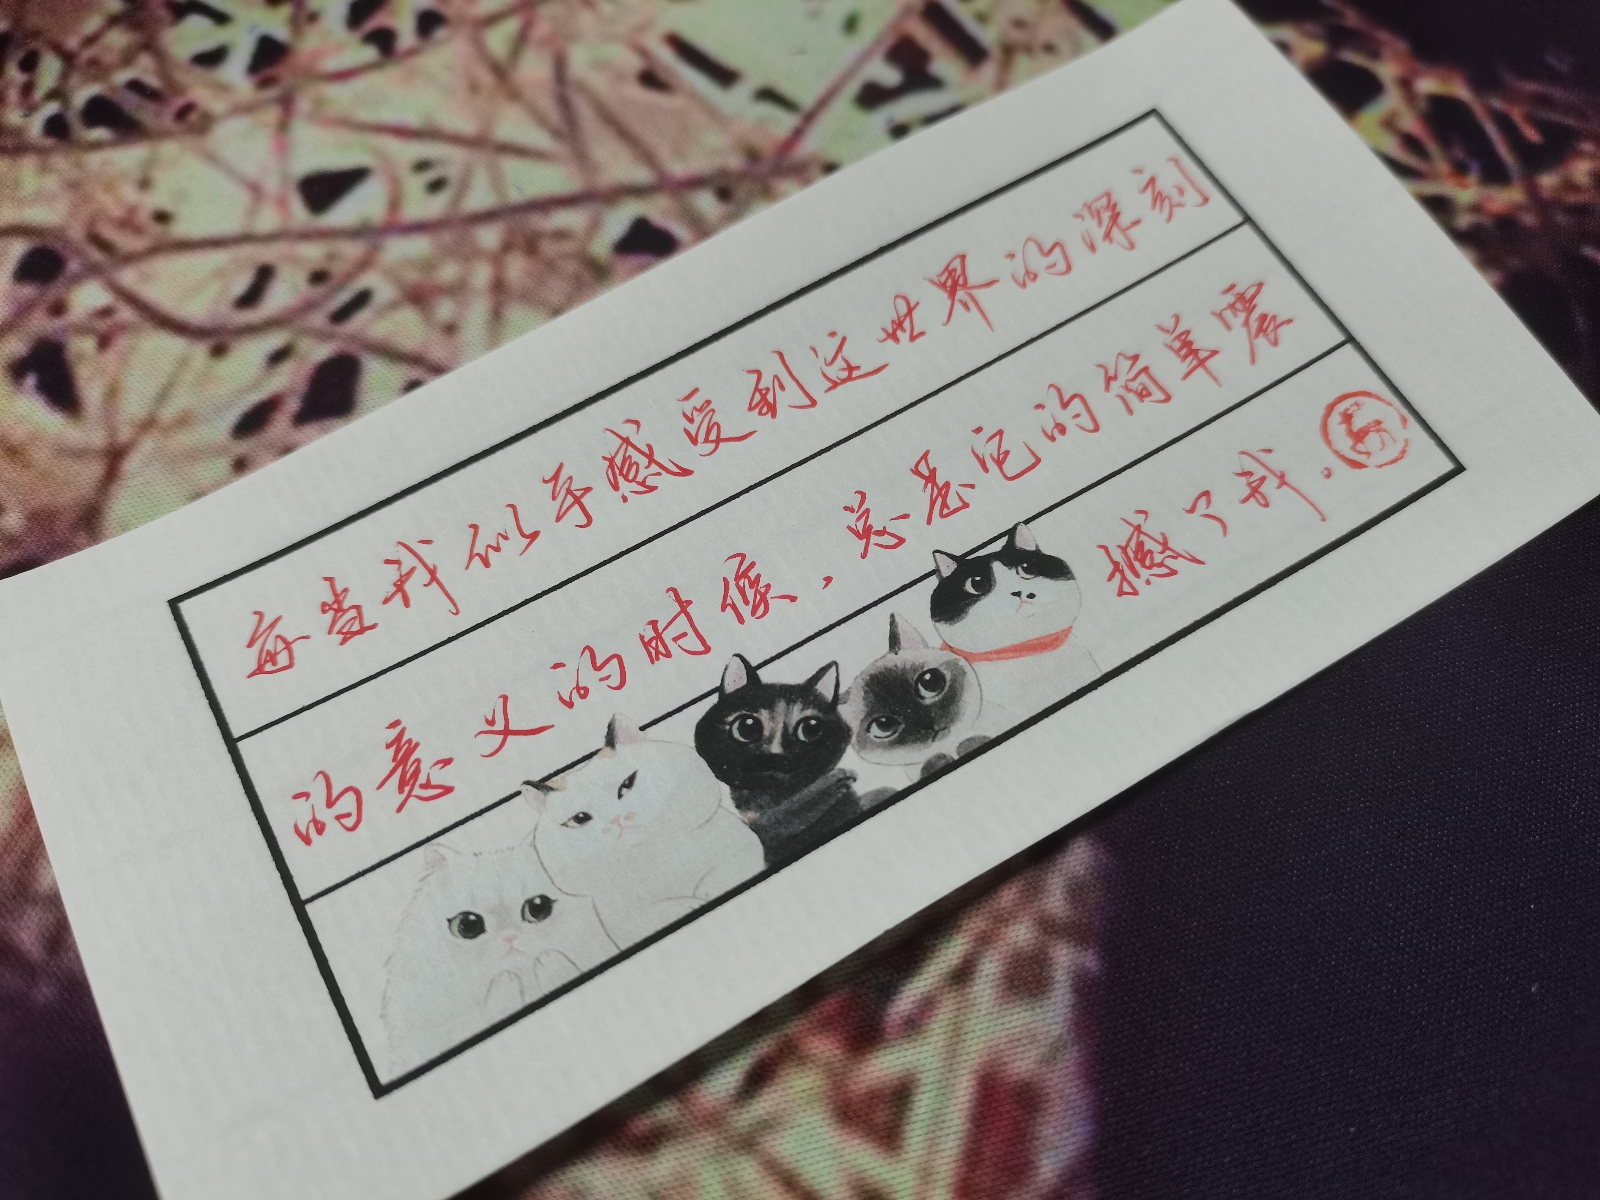 每当我似乎感受到这世界的深刻
的意义的时候，总是它的简单震
撼了我.